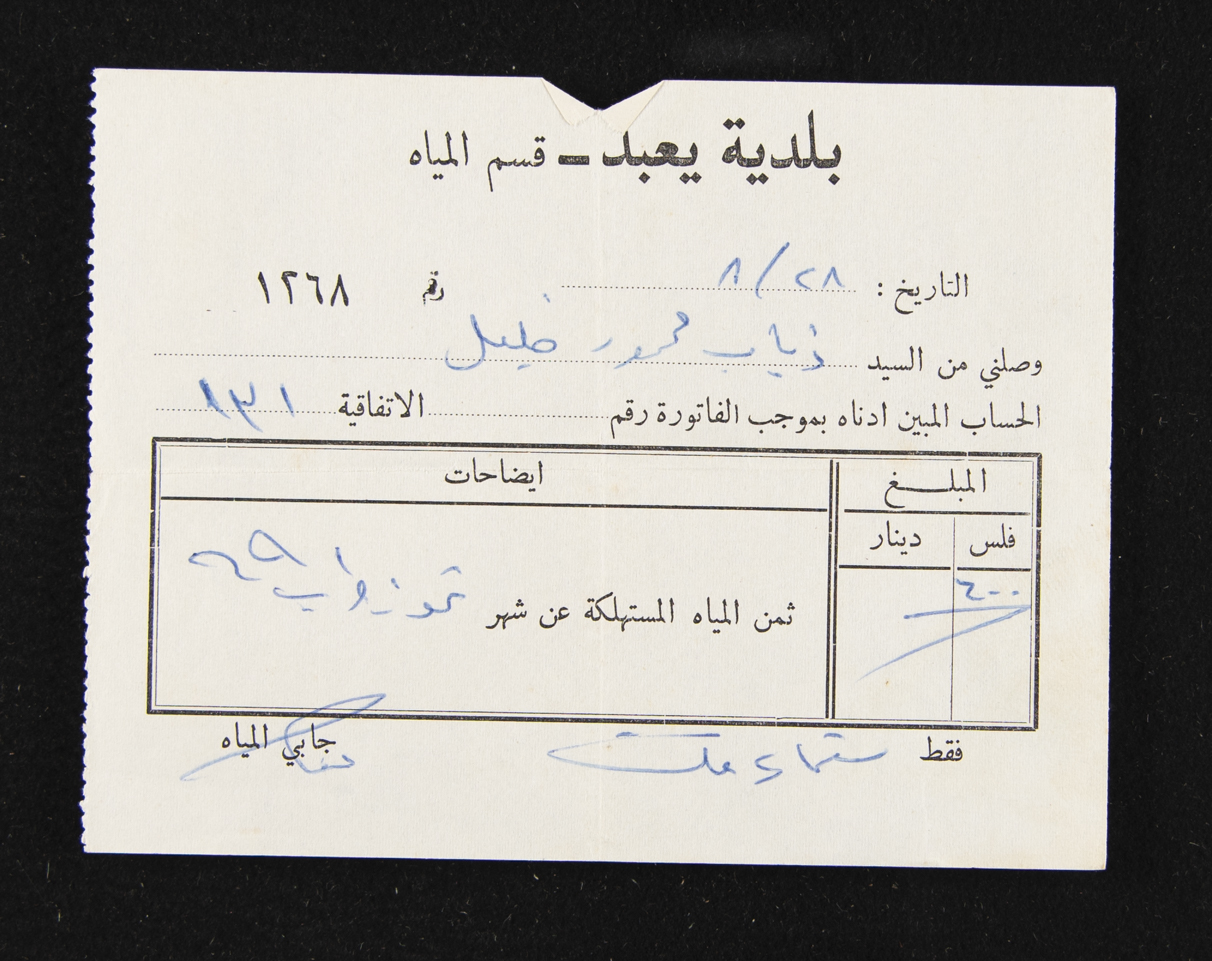 بلدية يعبد ـ قسم المياه
التاريخ : ٢٨ / ٨
رقم ١٢٦٨
وصلني من السيد ذياب محمود خليل
الحساب المبين ادناه بموجب الفاتورة رقم الاتفاقية ١٣١
المبلـــغ ايضاحات
فلس دينار
٦٠٠
ثمن المياه المستهلكة عن شهر تموز واب
فقط ستماءة فلس
جابي المياه